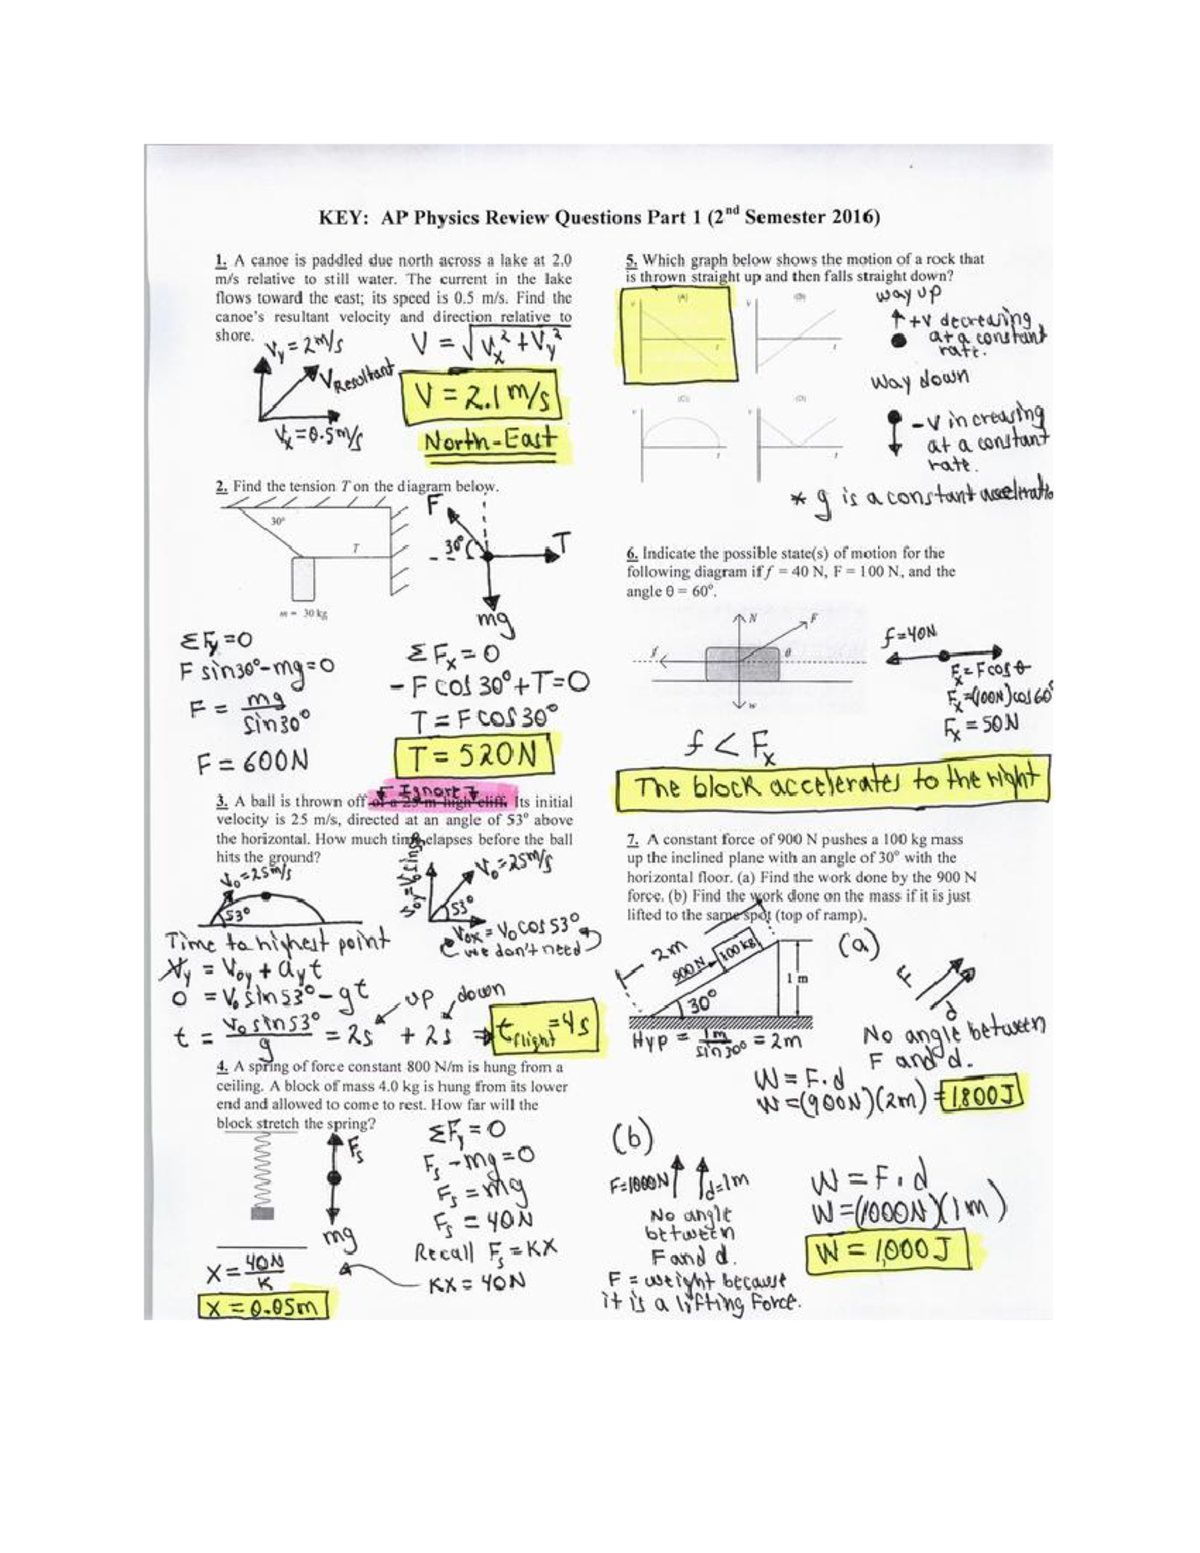 KEY: AP Physics Review Questions Part 1 (2nd Semester 2016)
1. A canoe is paddled due north across a lake at 2.0
m/s relative to still water. The current in the lake
flows toward the east; its speed is 0.5 m/s. Find the
canoe's resultant velocity and direction relative to
shore.
Vy = 2m/s
V = √Vx² + Vy²
VResultant
V = 2.1 m/s
Vx = 0.5m/s
North-East
2. Find the tension T on the diagram below.
30°
T
m = 30 kg
F
30°
T
mg
ΣFy = 0
F sin30° - mg = 0
F = mg / sin30°
F = 600N
ΣFx = 0
- F cos 30° + T = 0
T = F cos 30°
T = 520N
Ignore
3. A ball is thrown off of a 25 m high cliff. Its initial
velocity is 25 m/s, directed at an angle of 53° above
the horizontal. How much time elapses before the ball
hits the ground?
Vo = 25m/s
53°
Vo = 25m/s
53°
Vox = Vo cos 53°
we don't need
Time to highest point
Vy = Voy + ayt
0 = Vo sin53° - gt
up down
t = Vo sin53° / g = 2s + 2s ⇒ tflight = 4s
4. A spring of force constant 800 N/m is hung from a
ceiling. A block of mass 4.0 kg is hung from its lower
end and allowed to come to rest. How far will the
block stretch the spring?
Fs
mg
ΣFy = 0
Fs - mg = 0
Fs = mg
Fs = 40N
Recall Fs = KX
KX = 40N
X = 40N / K
X = 0.05m
5. Which graph below shows the motion of a rock that
is thrown straight up and then falls straight down?
(A) (B)
v t v t
(C) (D)
v t v t
way up
+v decreasing
at a constant
rate.
way down
-v increasing
at a constant
rate.
* g is a constant acceleratio
6. Indicate the possible state(s) of motion for the
following diagram if f = 40 N, F = 100 N, and the
angle θ = 60°.
N
F
f
θ
w
f = 40N
Fx = F cos θ
Fx = (100N) cos 60°
Fx = 50N
f < Fx
The block accelerates to the right
7. A constant force of 900 N pushes a 100 kg mass
up the inclined plane with an angle of 30° with the
horizontal floor. (a) Find the work done by the 900 N
force. (b) Find the work done on the mass if it is just
lifted to the same spot (top of ramp).
2m
900N
100kg
1 m
30°
Hyp = 1m / sin30° = 2m
(a)
F
d
No angle between
F and d.
W = F.d
W = (900N)(2m) = 1,800J
(b)
F=1000N
d=1m
No angle
between
F and d.
F = weight because
it is a lifting Force.
W = F.d
W = (1000N)(1m)
W = 1,000J